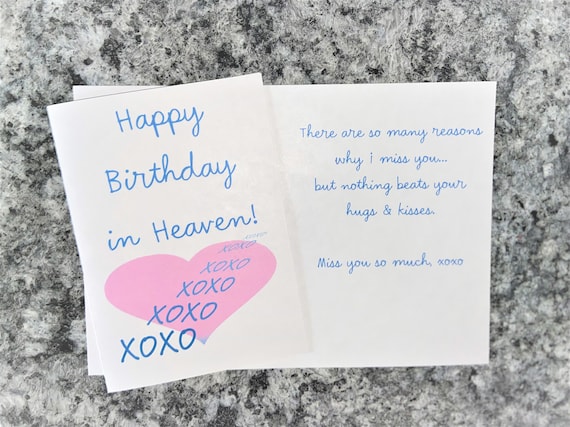 Happy
Birthday
in Heaven!
xoxo
XOXO
XOXO
XOXO
XOXO
XOXO
There are so many reasons
why i miss you...
but nothing beats your
hugs & kisses.
Miss you so much, xoxo